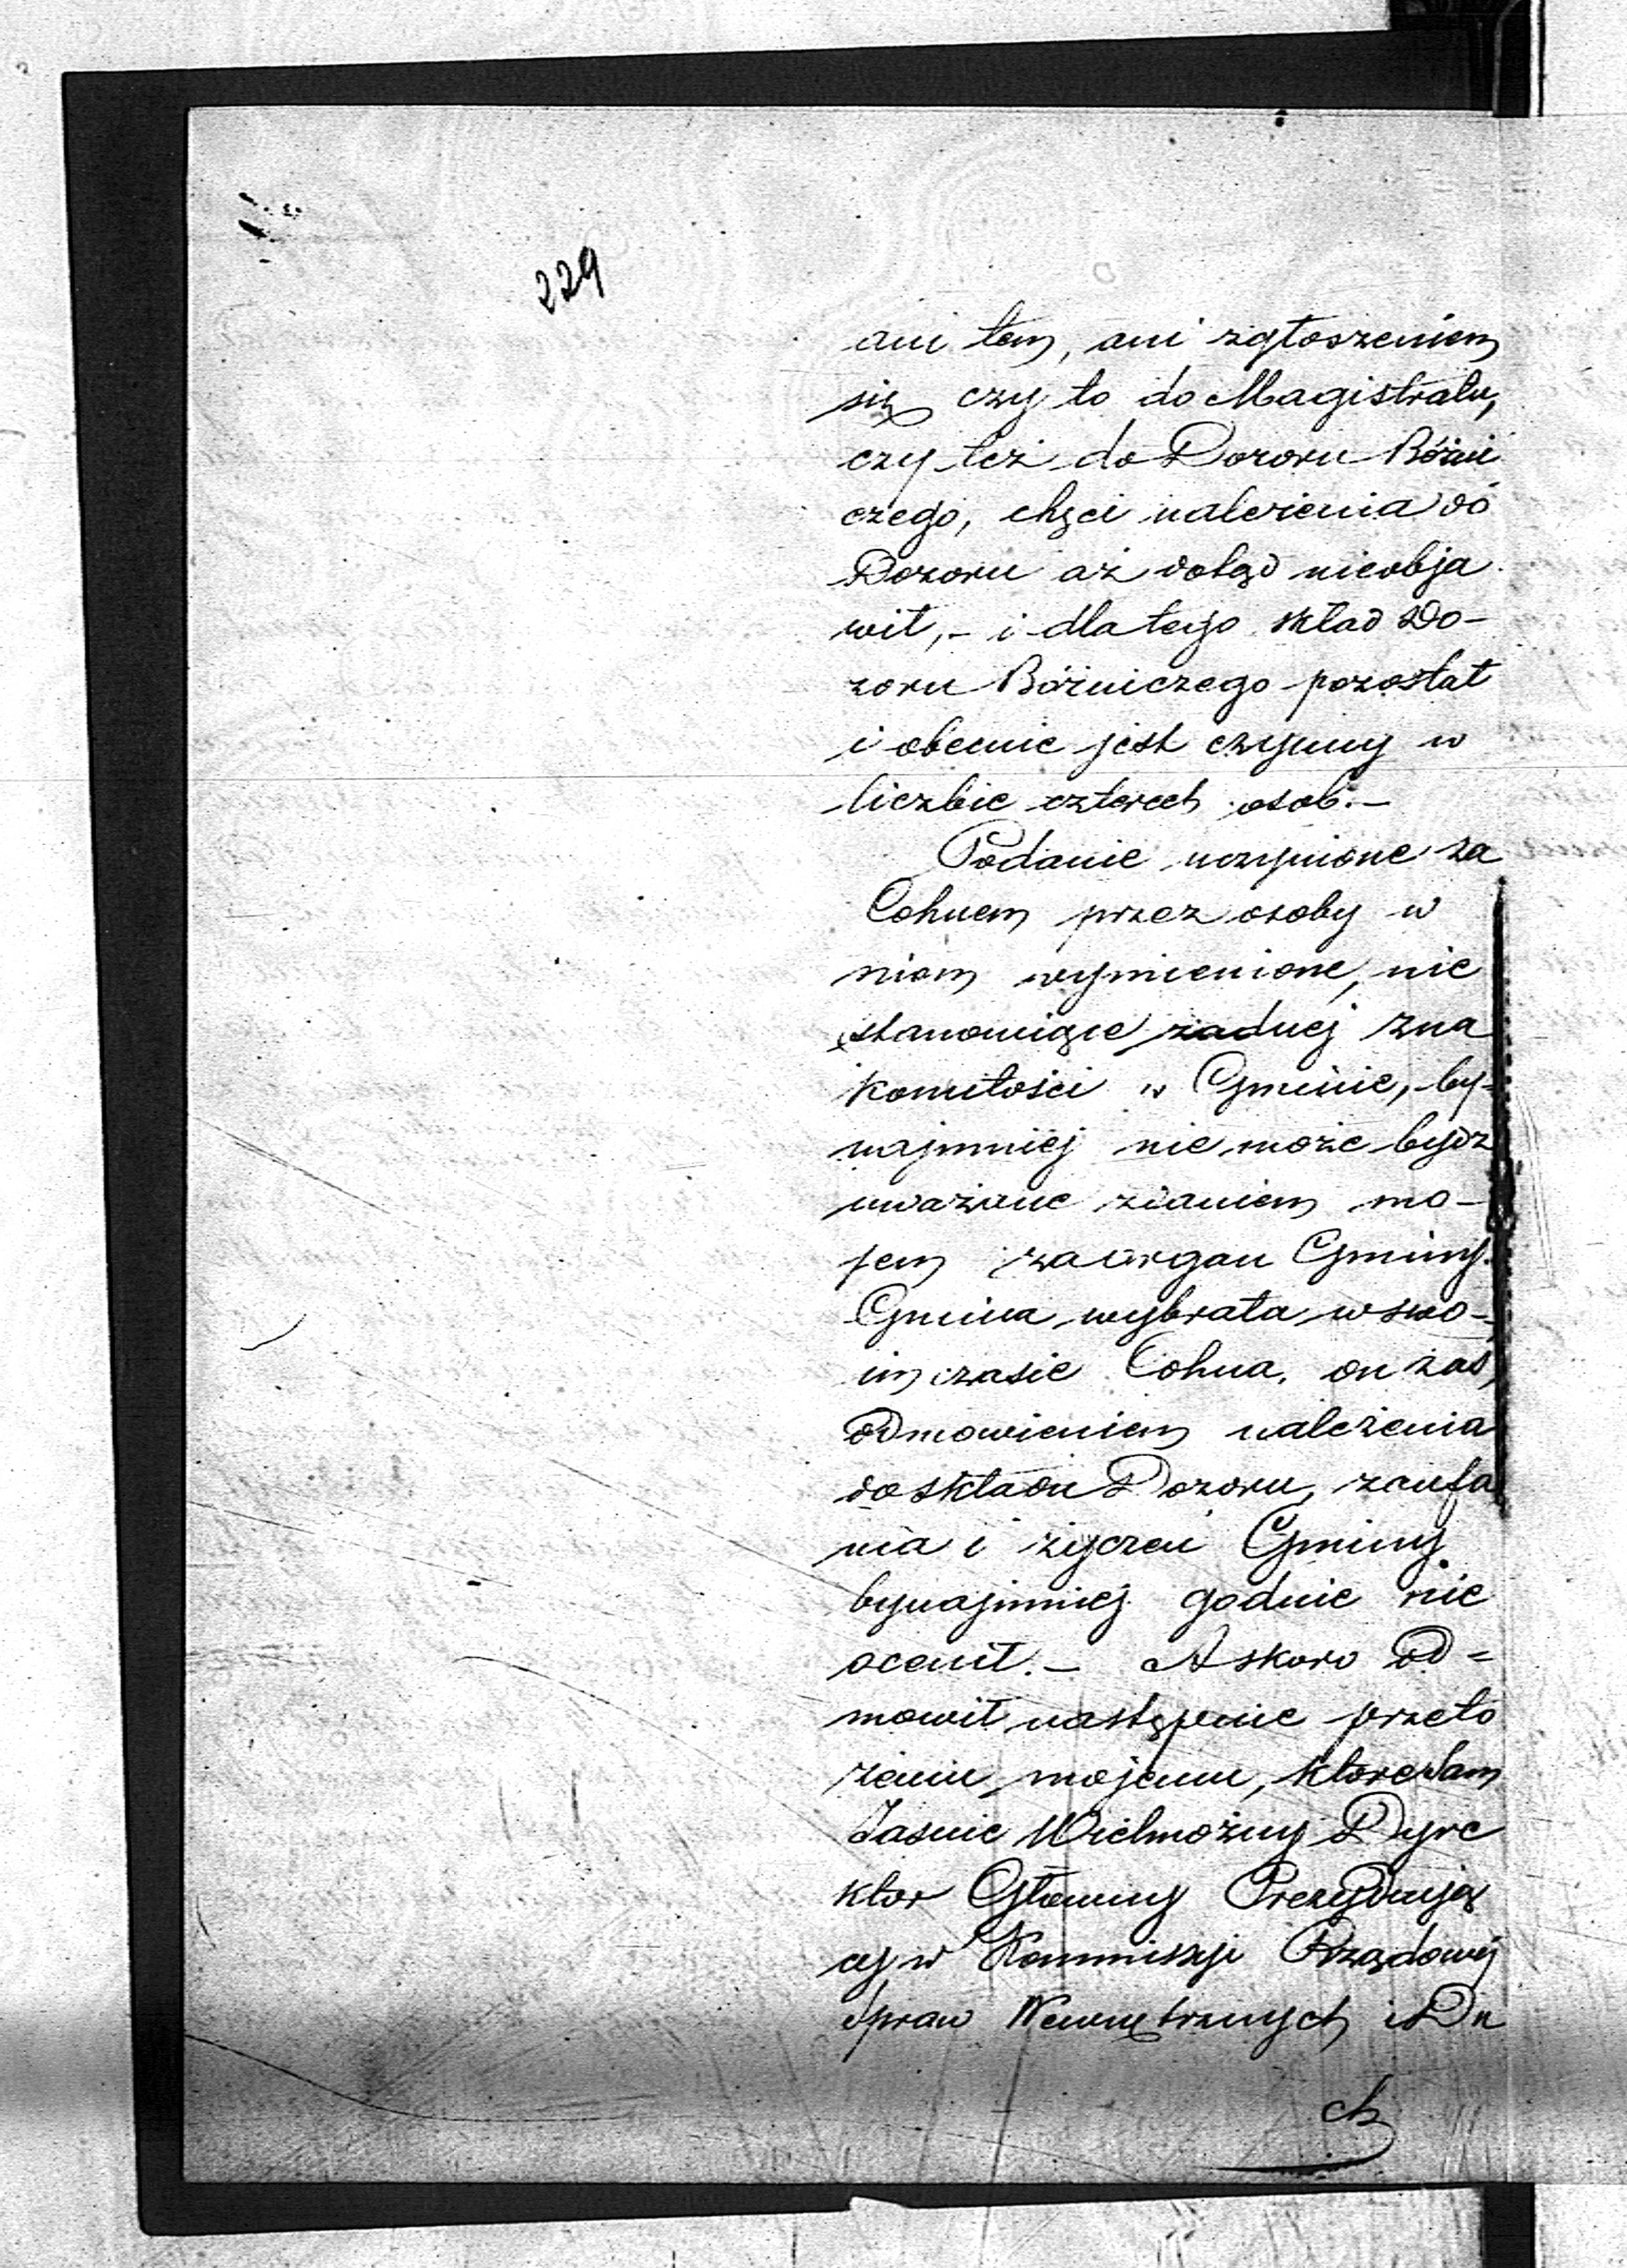 229
ani tem, ani zgłoszeniem
się czy to do Magistratu,
czy też do Dozoru Bóżni
czego, chęci należenia do
Dozoru aż dotąd nieobja
wił, – i dla tego skład Do-
zoru Bóżniczego pozostał
i obecnie jest czynny w
liczbie czterech osob. –
Podanie uczynione za
Cohnem przez osoby w
niem wymienione, nie
stanowiące żadnej zna
komitości w Gminie, by-
najmniej nie może bydz
uważane zdaniem mo-
jem za organ Gminy.
Gmina wybrała w swo-
im czasie Cohna, on zaś,
odmowieniem należenia
do składu Dozoru, zaufa
nia i życzeń Gminy
bynajmniej godnie nie
ocenił. – A skoro od=
mowił następnie przeło
żeniu mojemu, które sam
Jaśnie Wielmożny Dyre
ktor Główny Prezydują
cy w Kommissyi Rządowej
Spraw Wewnętrznych i Du
ch